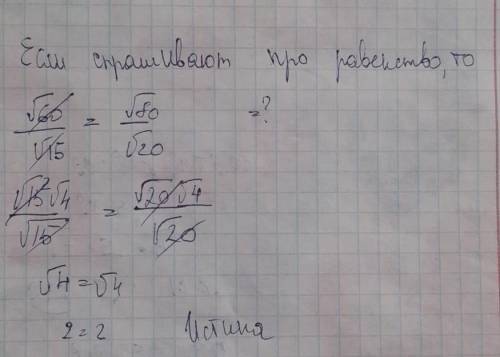 Если спрашивают про равенство, то
√60/√15 = √80/√20 =?
√15√4/√15 = √20√4/√20
√4 = √4
2=2 Истина